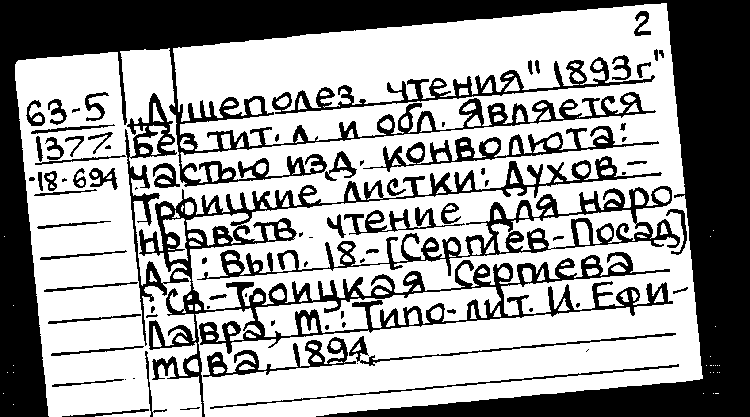 2
63-5
1377
18-694
„Душеполез. чтения" 1893г."
Без тит. л. и обл. Является
частью изд. конволюта:
Троицкие листки: Духов.-
нравств. чтение для наро-
да: Вып. 18.-[Сергиев-Посад]
: Св.-Троицкая Сергиева
Лавра; М.: Типо-лит. И. Ефи-
мова, 1894.